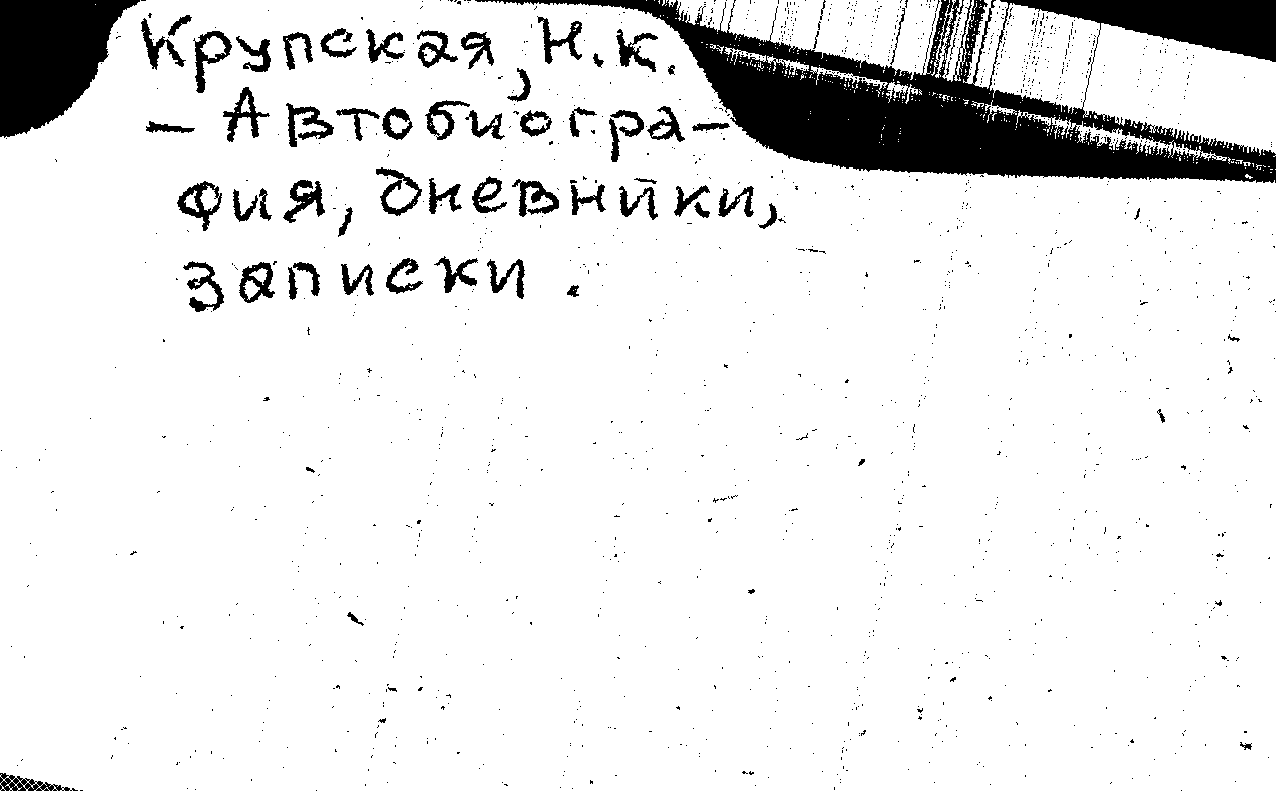 Крупская, Н.К.
— Автобиогра-
фия, дневники,
записки.